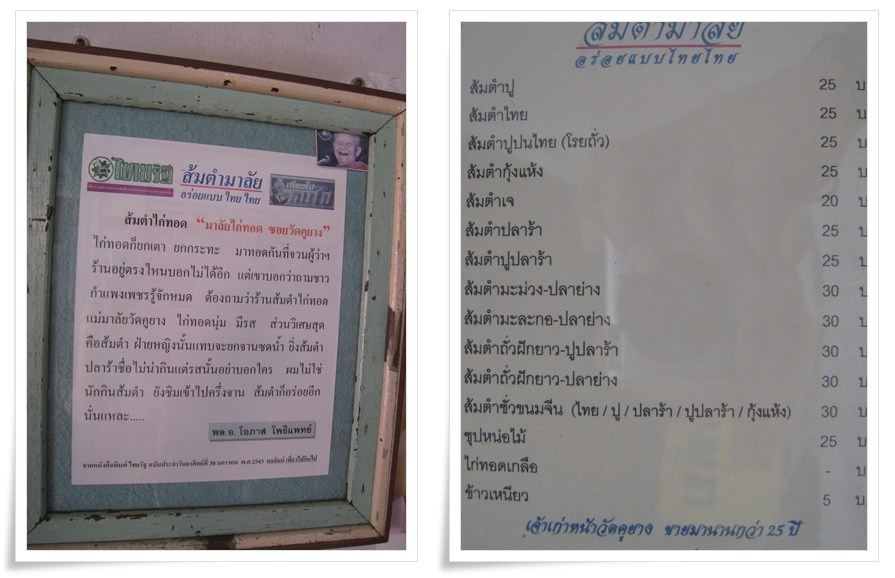 ไทยรัฐ ส้มตำมาลัย
อร่อยแบบ ไทย ไทย
ส้มตำไก่ทอด “มาลัยไก่ทอด ซอยวัดคูยาง”
ไก่ทอดก็ยกเตา ยกกระทะ มาทอดกันที่จวนผู้ว่าฯ
ร้านอยู่ตรงไหนบอกไม่ได้อีก แต่เขาบอกว่าถามชาว
กำแพงเพชรรู้จักหมด ต้องถามว่าร้านส้มตำไก่ทอด
แม่มาลัยวัดคูยาง ไก่ทอดนุ่ม มีรส ส่วนวิเศษสุด
คือส้มตำ ฝ่ายหญิงนั้นแทบจะยกจานซดน้ำ ยิ่งส้มตำ
ปลาร้าชื่อไม่น่ากินแต่รสนั้นอย่าบอกใคร ผมไม่ใช่
นักกินส้มตำ ยังชิมเข้าไปครึ่งจาน ส้มตำก็อร่อยอีก
นั่นแหละ.....
พล.อ. โอภาส โพธิแพทย์
จากหนังสือพิมพ์ ไทยรัฐ ฉบับประจำวันอาทิตย์ที่ 30 มกราคม พ.ศ.2543
ส้มตำมาลัย
อร่อยแบบไทยไทย
ส้มตำปู 25 บ
ส้มตำไทย 25 บ
ส้มตำปูปนไทย (โรยถั่ว) 25 บ
ส้มตำกุ้งแห้ง 25 บ
ส้มตำเจ 20 บ
ส้มตำปลาร้า 25 บ
ส้มตำปูปลาร้า 25 บ
ส้มตำมะม่วง-ปลาย่าง 30 บ
ส้มตำมะละกอ-ปลาย่าง 30 บ
ส้มตำถั่วฝักยาว-ปูปลาร้า 30 บ
ส้มตำถั่วฝักยาว-ปลาย่าง 30 บ
ส้มตำซั่วขนมจีน (ไทย / ปู / ปลาร้า / ปูปลาร้า / กุ้งแห้ง) 30 บ
ซุปหน่อไม้ 25 บ
ไก่ทอดเกลือ - บ
ข้าวเหนียว 5 บ.
เจ้าเก่าหน้าวัดคูยาง ขายมานานกว่า 25 ปี